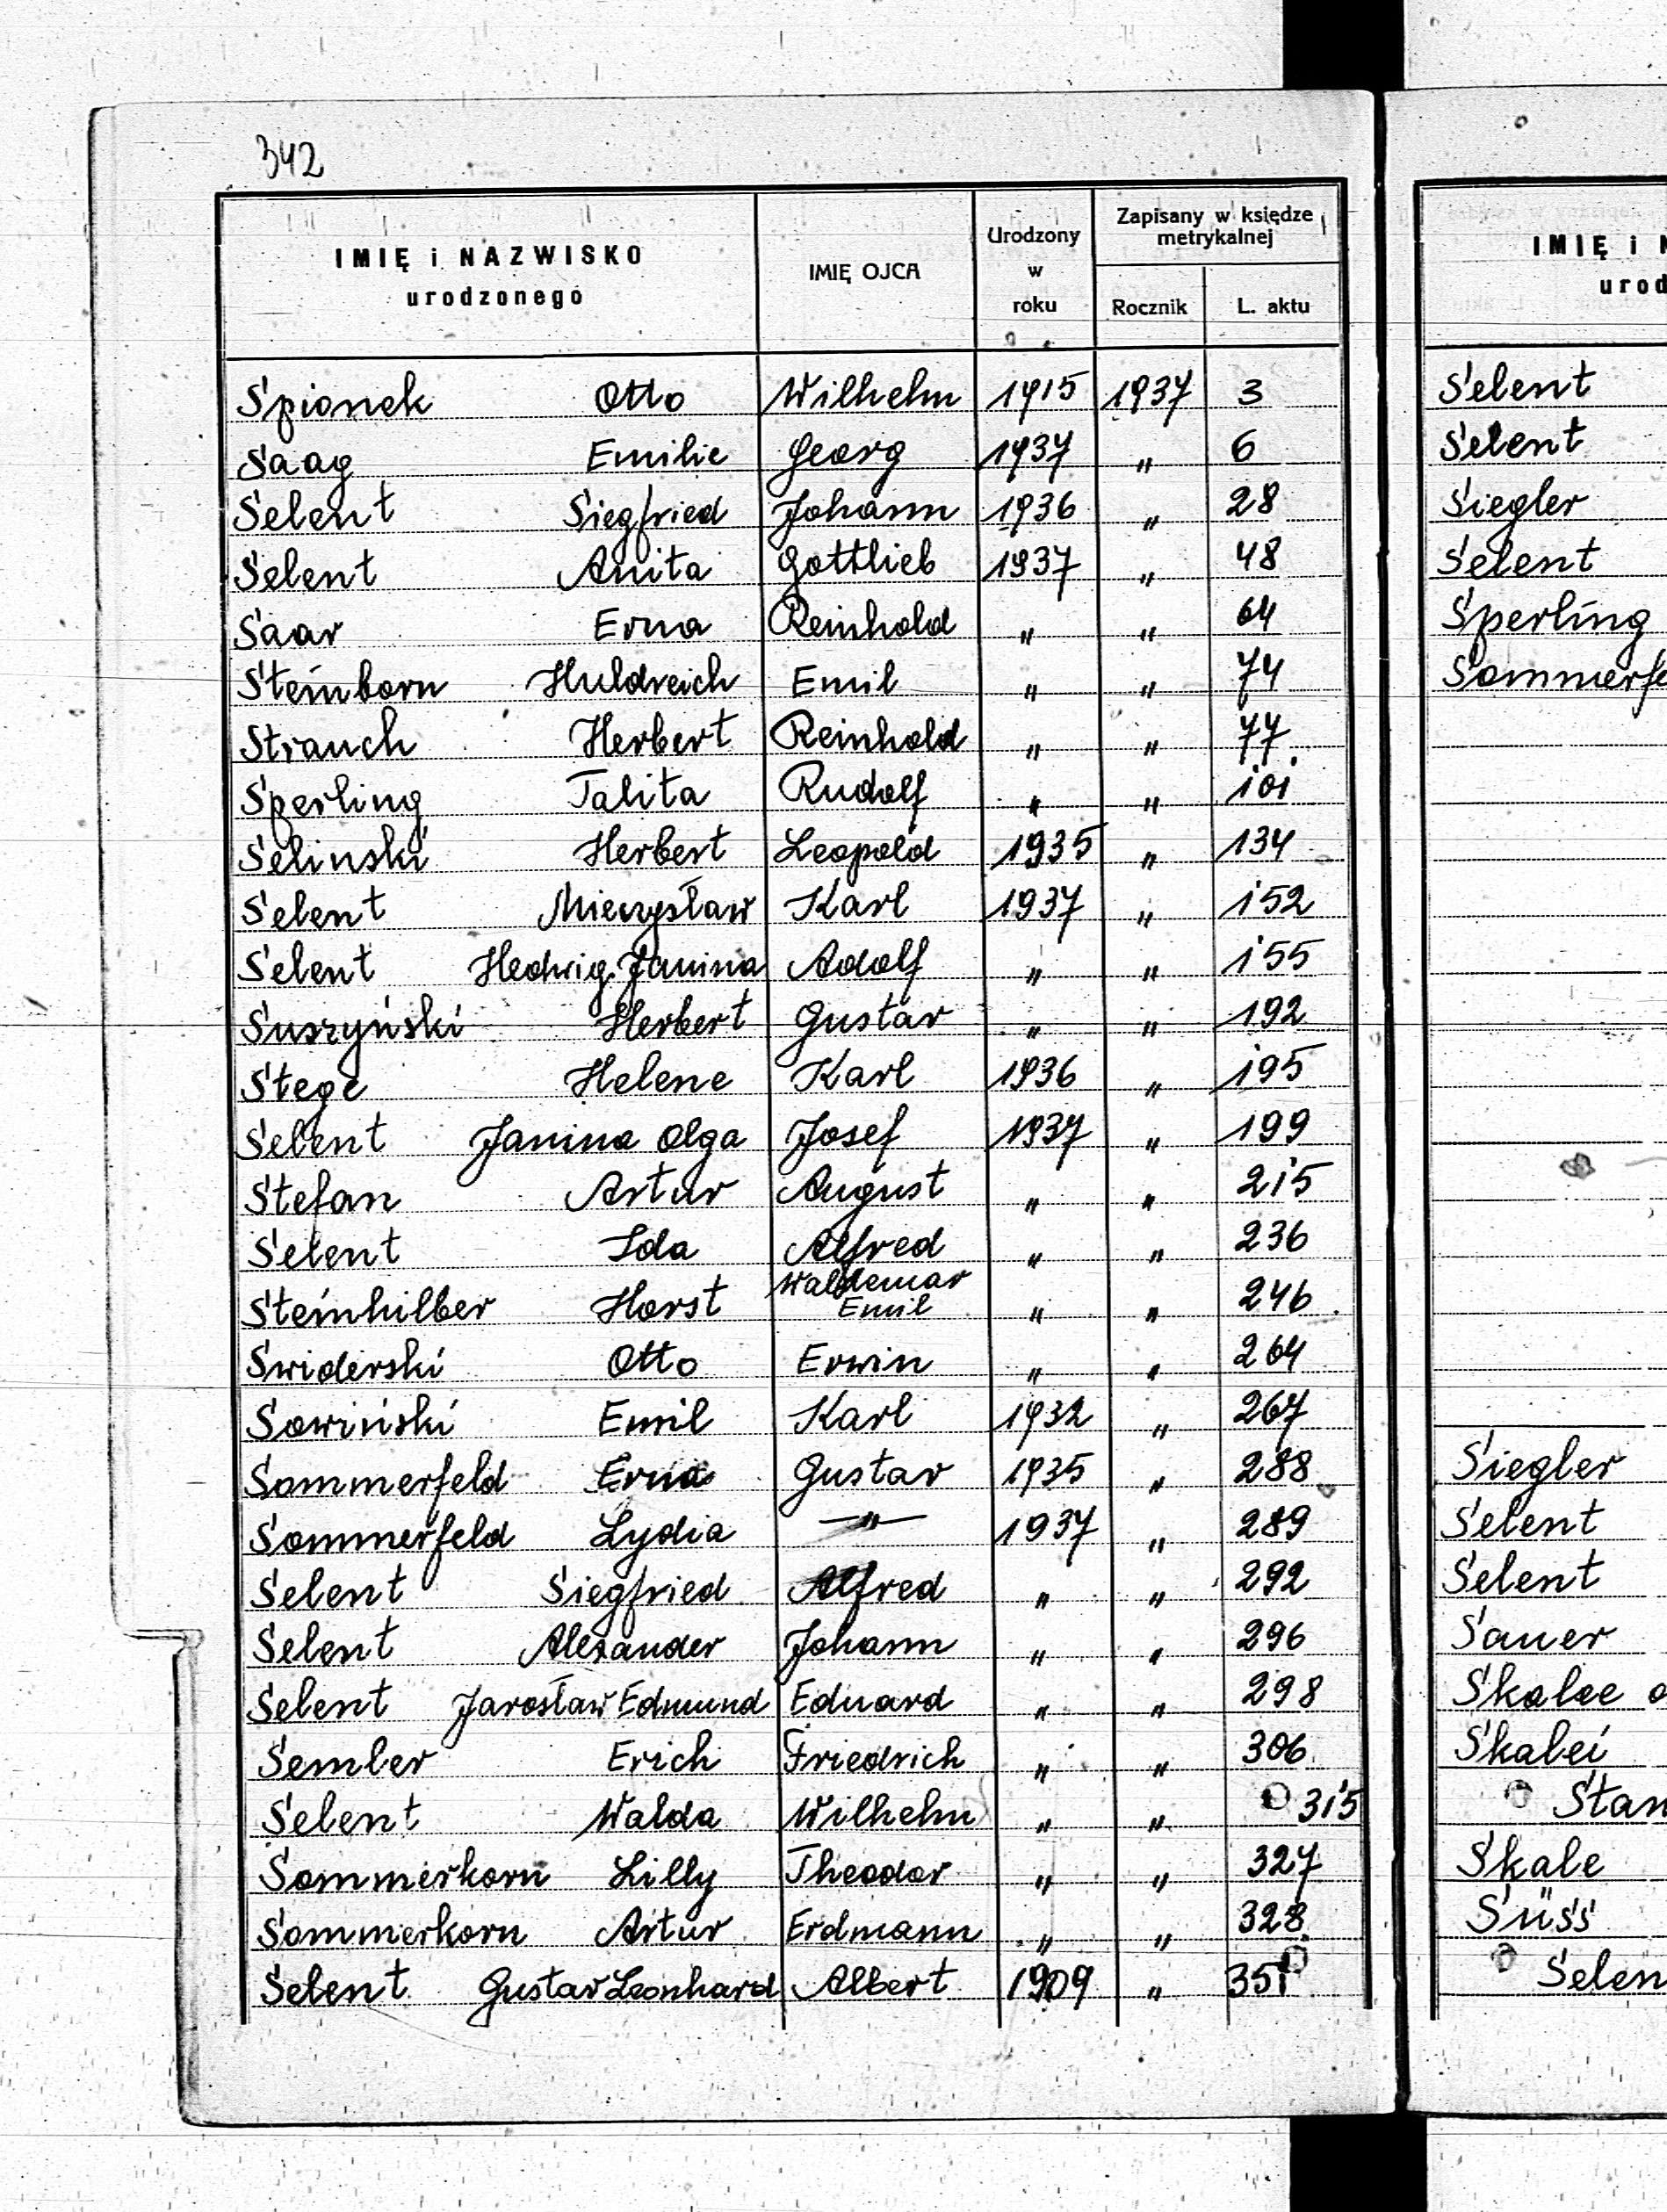 342
IMIĘ i NAZWISKO
urodzonego
IMIĘ OJCA
Urodzony
w
roku
Zapisany w księdze
metrykalnej
Rocznik L. aktu
Spionek Otto Wilhelm 1915 1937 3
Saag Emilie Georg 1937 " 6
Selent Siegfried Johann 1936 " 28
Selent Anita Gottlieb 1937 " 48
Saar Erna Reinhold " " 64
Steinborn Huldreich Emil " " 74
Strauch Herbert Reinhold " " 77
Sperling Talita Rudolf " " 101
Selinski Herbert Leopold 1935 " 134
Selent Mieczysław Karl 1937 " 152
Selent Hedwig Janina Adolf " " 155
Suszyński Herbert Gustav " " 192
Stege Helene Karl 1936 " 195
Selent Janina Olga Josef 1937 " 199
Stefan Artur August " " 215
Selent Ida Alfred " " 236
Steinhilber Horst Waldemar Emil " " 246
Swiderski Otto Erwin " " 264
Sowiński Emil Karl 1932 " 267
Sommerfeld Erna Gustav 1935 " 288
Sommerfeld Lydia —"— 1937 " 289
Selent Siegfried Alfred " " 292
Selent Alexander Johann " " 296
Selent Jarosław Edmund Eduard " " 298
Sember Erich Friedrich " " 306
Selent Walda Wilhelm " " 315
Sommerkorn Lilly Theodor " " 327
Sommerkorn Artur Erdmann " " 328
Selent Gustav Leonhard Albert 1909 " 351
IMIĘ i N
urod
Selent
Selent
Siegler
Selent
Sperling
Sommerfe
Siegler
Selent
Selent
Sauer
Skalee o
Skalei
Stan
Skale
Süss
Selen